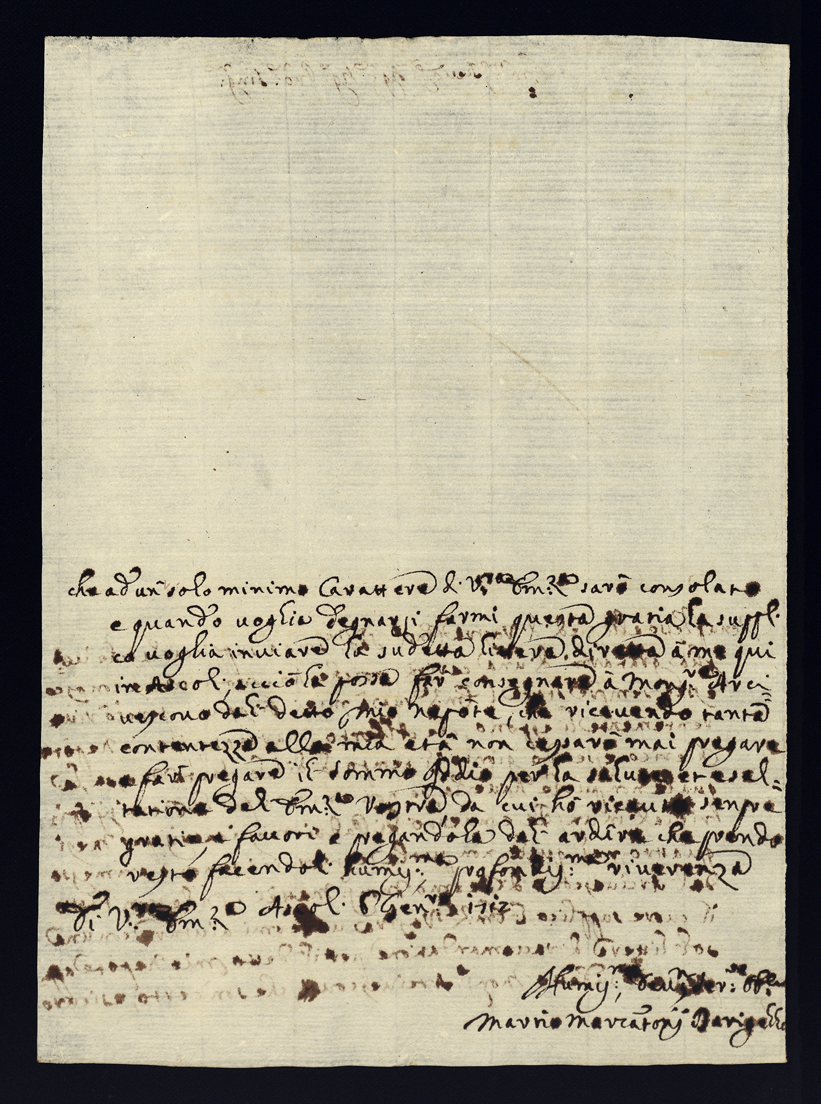 che ad un solo minimo Carattere di V.ra Em.za sarò consolato
e quando voglia degnarsi farmi questa gratia la suppl.
co voglia inviare la sudetta lettera diretta à me qui
in Ascoli, acciò la possa far consegnare à Mons.re Arci=
vescovo del detto mio nepote, che ricevendo tanta
contentezza alla mia età non cessarò mai pregare
e far pregare il sommo Iddio per la salute et esal=
tatione del Em.za Vostra, da cui hò ricevuto sempre
gratie, e favori e pregandola del ardire che prendo
resto facendoli humiss:ma profondiss:ma riverenza
Di V.ra Em.za Ascoli 6 Gen.ro 1712
Humiss:mo Ser:re
Martio Marcantonij